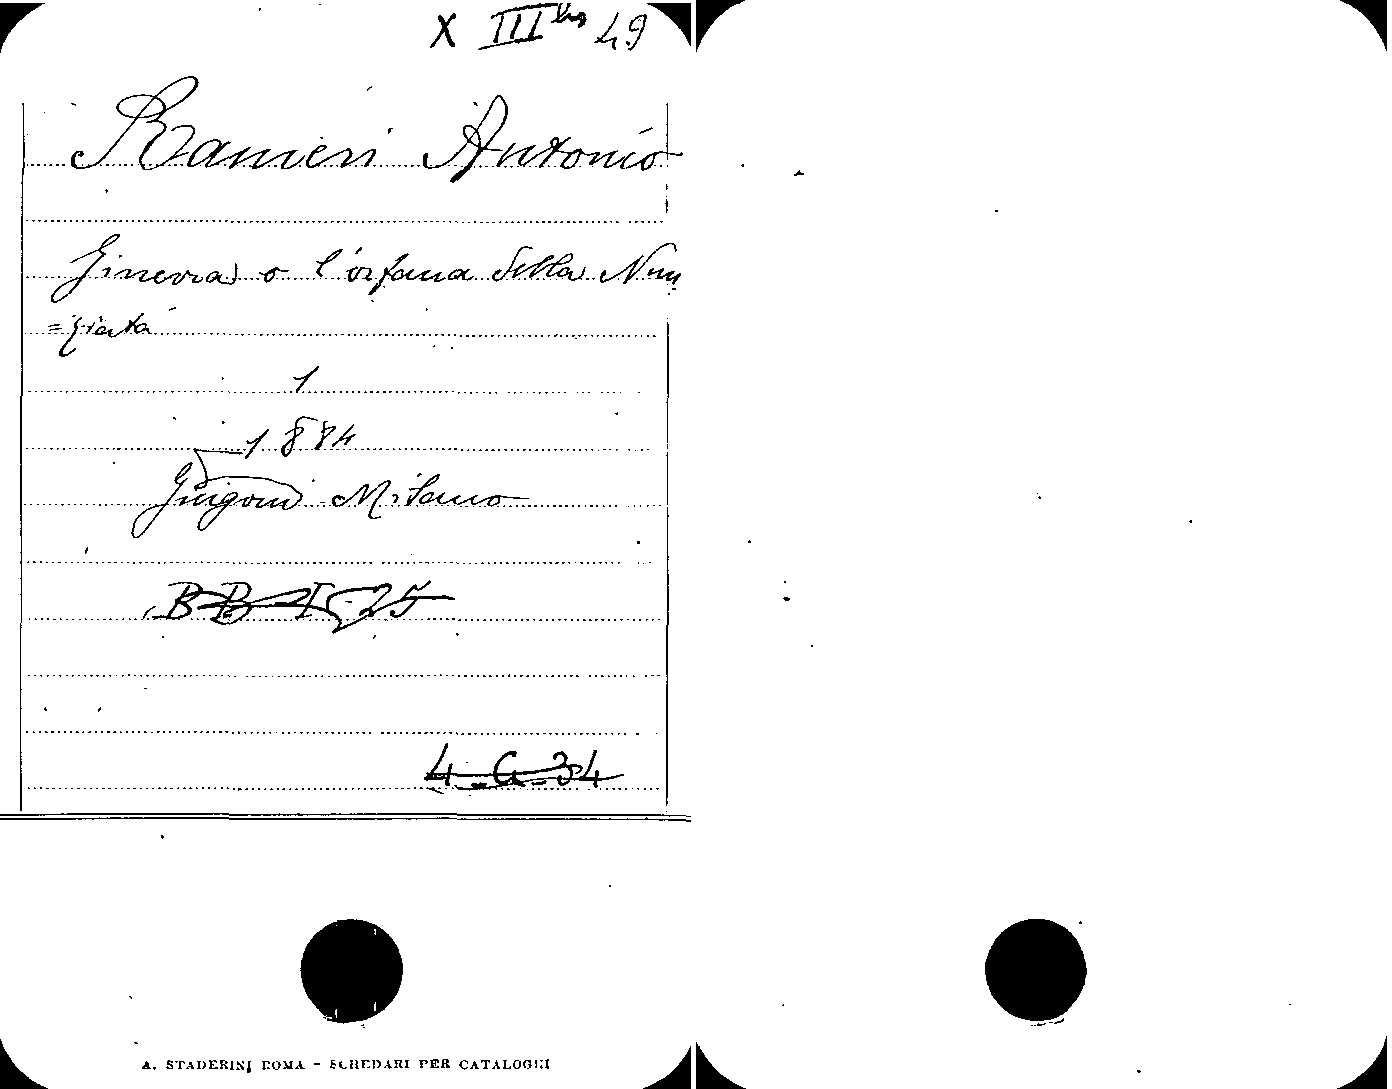 X III bis 49
Ranieri Antonio
Ginevra o l'orfana della Nun
=ziata
1
1884
Guigoni Milano
BB I 25
4-G-34
A. STADERINI ROMA - SCHEDARI PER CATALOGHI